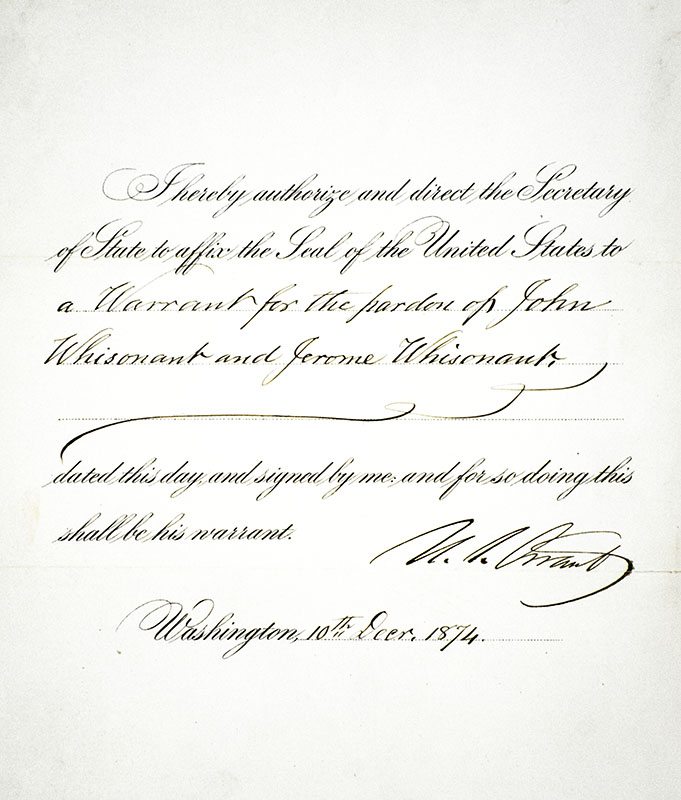 I hereby authorize and direct the Secretary
of State to affix the Seal of the United States to
a Warrant for the pardon of John
Whisonant and Jerome Whisonant.
dated this day, and signed by me: and for so doing this
shall be his warrant.
U. S. Grant
Washington, 10th Decr. 1874.